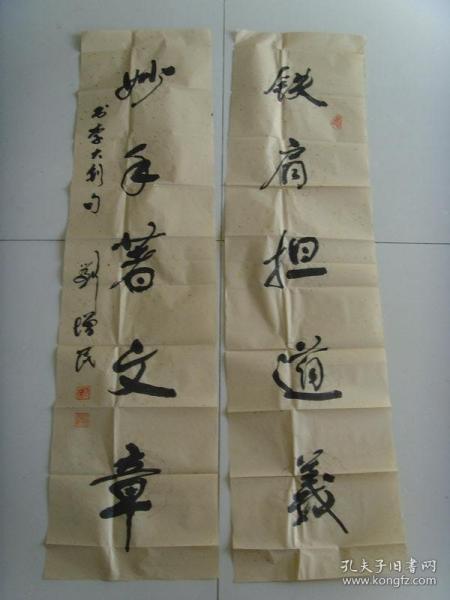 铁肩担道義
妙手著文章
书李大钊句
劉增民
孔夫子旧书网
www.kongfz.com